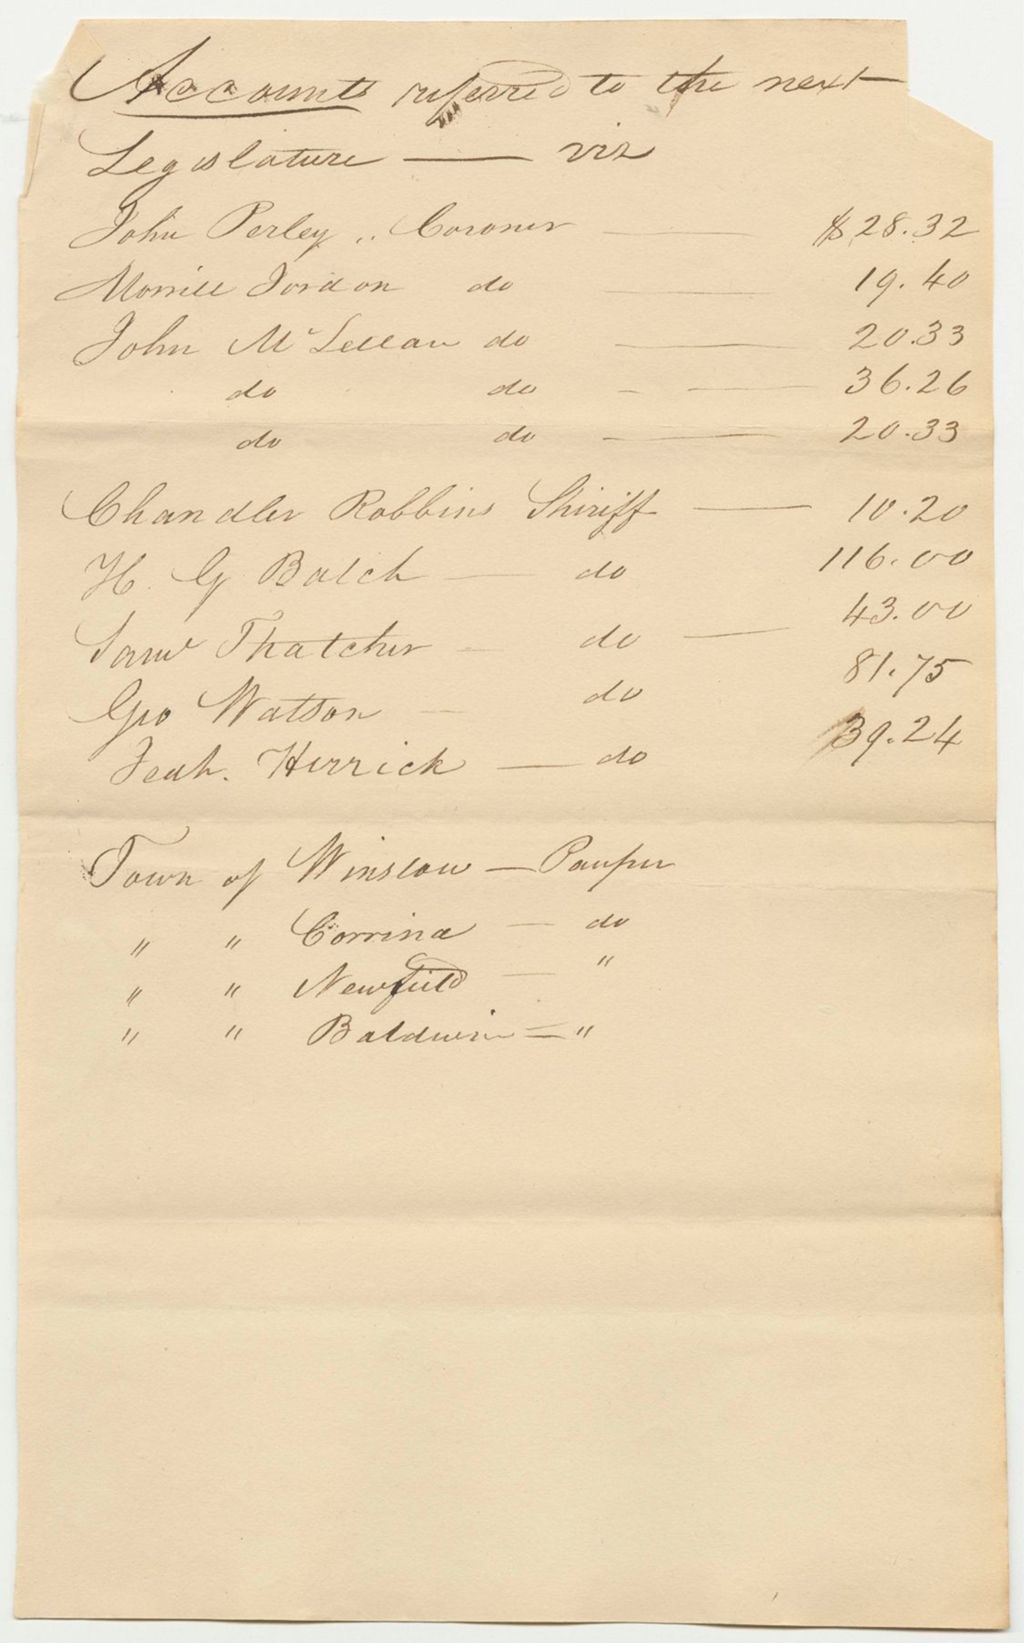 Accounts referred to the next
Legislature — viz
John Perley ,, Coroner — $28.32
Morrill Jordon do — 19.40
John McLellan do — 20.33
do do - — 36.26
do do - — 20.33
Chandler Robbins Shiriff — 10.20
H. G Balch — do 116.00
Saml Thatcher - do — 43.00
Geo Watson — do 81.75
Jedh. Herrick — do 39.24
Town of Winslow — Pauper
" " Corrina — do
" " Newfield — "
" " Baldwin = "